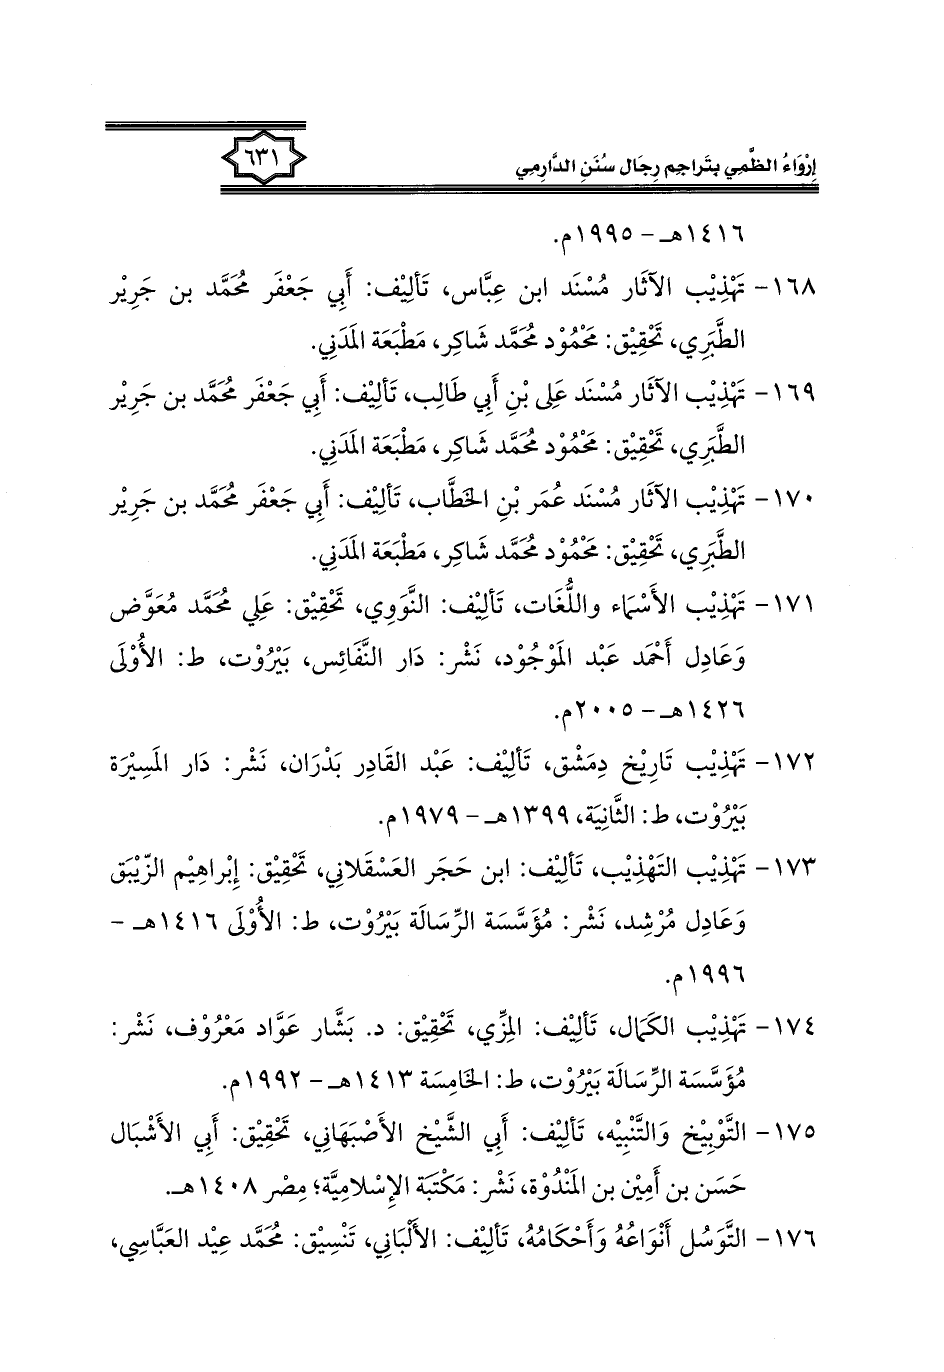 إِرْوَاءُ الظَّمِي بِتَراجِم رِجَال سُنَنِ الدَّارِمِي
٦٣١
١٤١٦هـ - ١٩٩٥م.
١٦٨- تَهْذِيْب الآثَار مُسْنَد ابن عِبَّاس، تَأْلِيْف: أَبِي جَعْفَر مُحَمَّد بن جَرِيْر
الطَّبَرِي، تَحْقِيْق: مَحْمُوْد مُحَمَّد شَاكِر، مَطْبَعَة المَدَنِي.
١٦٩- تَهْذِيْب الآثَار مُسْنَد عَلِى بْنِ أَبِي طَالِب، تَأْلِيْف: أَبِي جَعْفَر مُحَمَّد بن جَرِيْر
الطَّبَرِي، تَحْقِيْق: مَحْمُوْد مُحَمَّد شَاكِر، مَطْبَعَة المَدَنِي.
١٧٠- تَهْذِيْب الآثَار مُسْنَد عُمَر بْنِ الخَطَّاب، تَأْلِيْف: أَبِي جَعْفَر مُحَمَّد بن جَرِيْر
الطَّبَرِي، تَحْقِيْق: مَحْمُوْد مُحَمَّد شَاكِر، مَطْبَعَة المَدَنِي.
١٧١- تَهْذِيْب الأَسْمَاء واللُّغَات، تَأْلِيْف: النَّوَوِي، تَحْقِيْق: عَلِي مُحَمَّد مُعَوَّض
وَعَادِل أَحْمَد عَبْد المَوْجُوْد، نَشْر: دَار النَّفَائِس، بَيْرُوْت، ط: الأُوْلَى
١٤٢٦هـ - ٢٠٠٥م.
١٧٢- تَهْذِيْب تَارِيْخ دِمَشْق، تَأْلِيْف: عَبْد القَادِر بَدْرَان، نَشْر: دَار المَسِيْرَة
بَيْرُوْت، ط: الثَّانِيَة، ١٣٩٩هـ - ١٩٧٩م.
١٧٣- تَهْذِيْب التَهْذِيْب، تَأْلِيْف: ابن حَجَر العَسْقَلانِي، تَحْقِيْق: إِبْراهِيْم الزّيْبَق
وَعَادِل مُرْشِد، نَشْر: مُؤَسَّسَة الرِّسَالَة بَيْرُوْت، ط: الأُوْلَى ١٤١٦هـ -
١٩٩٦م.
١٧٤- تَهْذِيْب الكَمَال، تَأْلِيْف: المِزِّي، تَحْقِيْق: د. بَشَّار عَوَّاد مَعْرُوْف، نَشْر:
مُؤَسَّسَة الرِّسَالَة بَيْرُوْت، ط: الخَامِسَة ١٤١٣هـ - ١٩٩٢م.
١٧٥- التَّوْبِيْخ وَالتَّنْبِيْه، تَأْلِيْف: أَبِي الشَّيْخ الأَصْبَهَانِي، تَحْقِيْق: أَبِي الأَشْبَال
حَسَن بن أَمِيْن بن المَنْدُوْة، نَشْر: مَكْتَبَة الإِسْلامِيَّة؛ مِصْر ١٤٠٨هـ.
١٧٦- التَّوَسُل أَنْوَاعُهُ وَأَحْكَامُهُ، تَأْلِيْف: الأَلْبَانِي، تَنْسِيْق: مُحَمَّد عِيْد العَبَّاسِي،